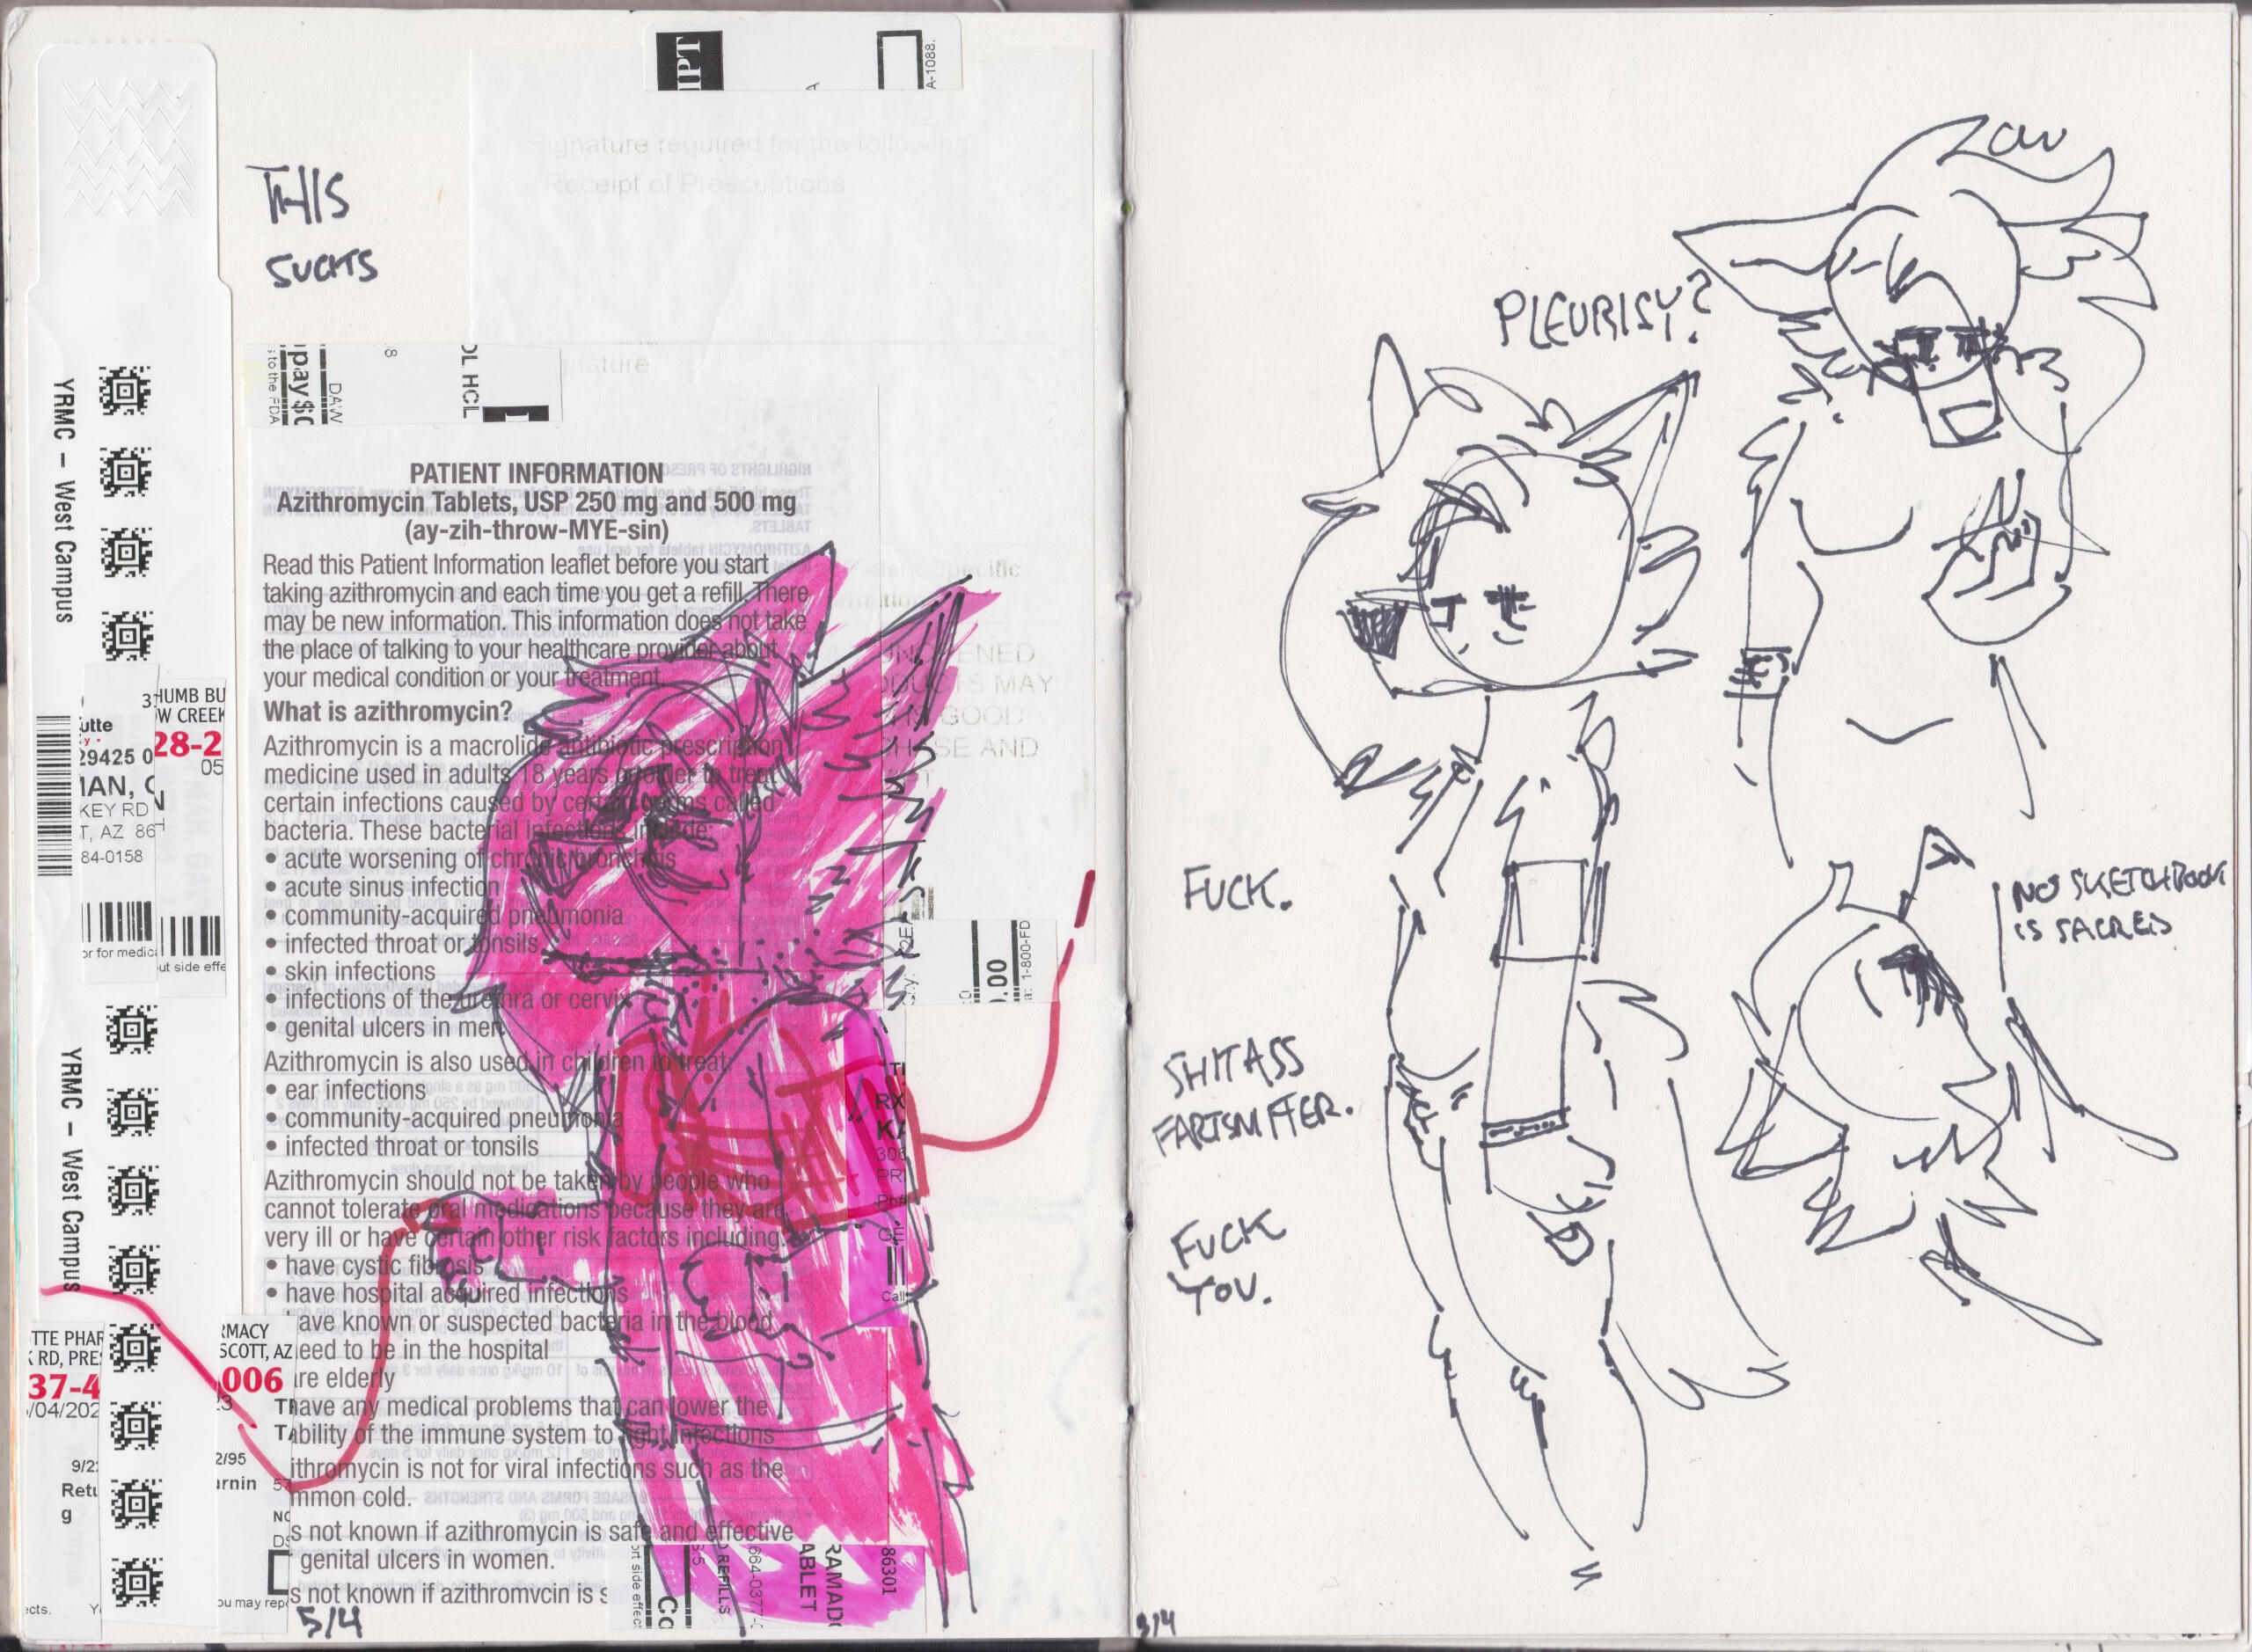 IPT
A-1088.
THIS
SUCKS
Signature required for the following
Receipt of Prescriptions
8
DAW
pay $0
s to the FDA
OL HCL
YRMC – West Campus
PATIENT INFORMATION
Azithromycin Tablets, USP 250 mg and 500 mg
(ay-zih-throw-MYE-sin)
Read this Patient Information leaflet before you start
taking azithromycin and each time you get a refill. There
may be new information. This information does not take
the place of talking to your healthcare provider about
your medical condition or your treatment.
What is azithromycin?
Azithromycin is a macrolide antibiotic prescription
medicine used in adults 18 years or older to treat
certain infections caused by certain germs called
bacteria. These bacterial infections include:
• acute worsening of chronic bronchitis
• acute sinus infection
• community-acquired pneumonia
• infected throat or tonsils
• skin infections
• infections of the urethra or cervix
• genital ulcers in men
Azithromycin is also used in children to treat:
• ear infections
• community-acquired pneumonia
• infected throat or tonsils
Azithromycin should not be taken by people who
cannot tolerate oral medications because they are
very ill or have certain other risk factors including:
• have cystic fibrosis
• have hospital acquired infections
have known or suspected bacteria in the blood
need to be in the hospital
are elderly
have any medical problems that can lower the
ability of the immune system to fight infections
ithromycin is not for viral infections such as the
mmon cold.
s not known if azithromycin is safe and effective
genital ulcers in women.
s not known if azithromycin is s
HUMB BU
W CREEK
utte
28-2
29425 0
05
MAN,
KEY RD
T, AZ 86
84-0158
or for medica
ut side effe
.00
1-800-FD
YRMC – West Campus
TTE PHAR
RD, PRE
37-4
/04/202
RMACY
SCOTT, AZ
006
2/95
urnin
57
9/2
Retu
g
ects.
ou may rep
RX
306
PR
Call
REFILLS
664-0377-
ABLET
RAMAD
86301
5/4
ZOW
PLEURISY?
FUCK.
NO SKETCHBOOK
IS SACRED
SHITASS
FARTSNIFFER.
FUCK
YOU.
5/4